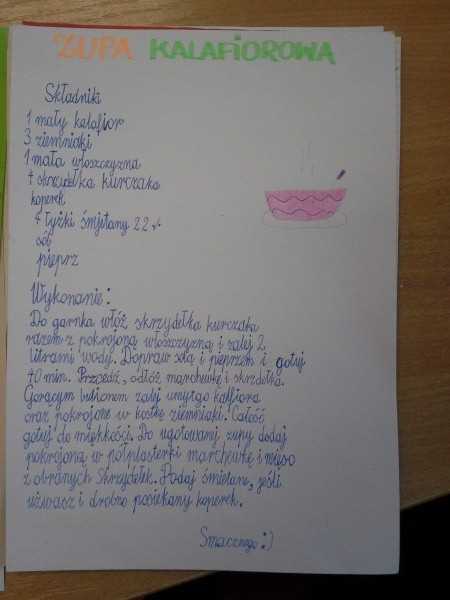 ZUPA KALAFIOROWA
Składniki
1 mały kalafior
3 ziemniaki
1 mała włoszczyzna
4 skrzydełka kurczaka
koperek
4 łyżki śmietany 22%
sól
pieprz
Wykonanie:
Do garnka włóż skrzydełka kurczaka
razem z pokrojoną włoszczyzną i zalej 2
litrami wody. Dopraw solą i pieprzem i gotuj
40 min. Przcedź, odłóż marchewkę i skrzdełka.
Gorącym bulionem zalej umytego kalfiora
oraz pokrojone w kostkę ziemniaki. Całość
gotuj do miękkości. Do ugotowanej zupy dodaj
pokrojoną w półplasterki marchewkę i mięso
z obranych Skrzydełek. Podaj śmietanę, jeśli
używasz i drobno posiekany koperek.
Smacznego :)